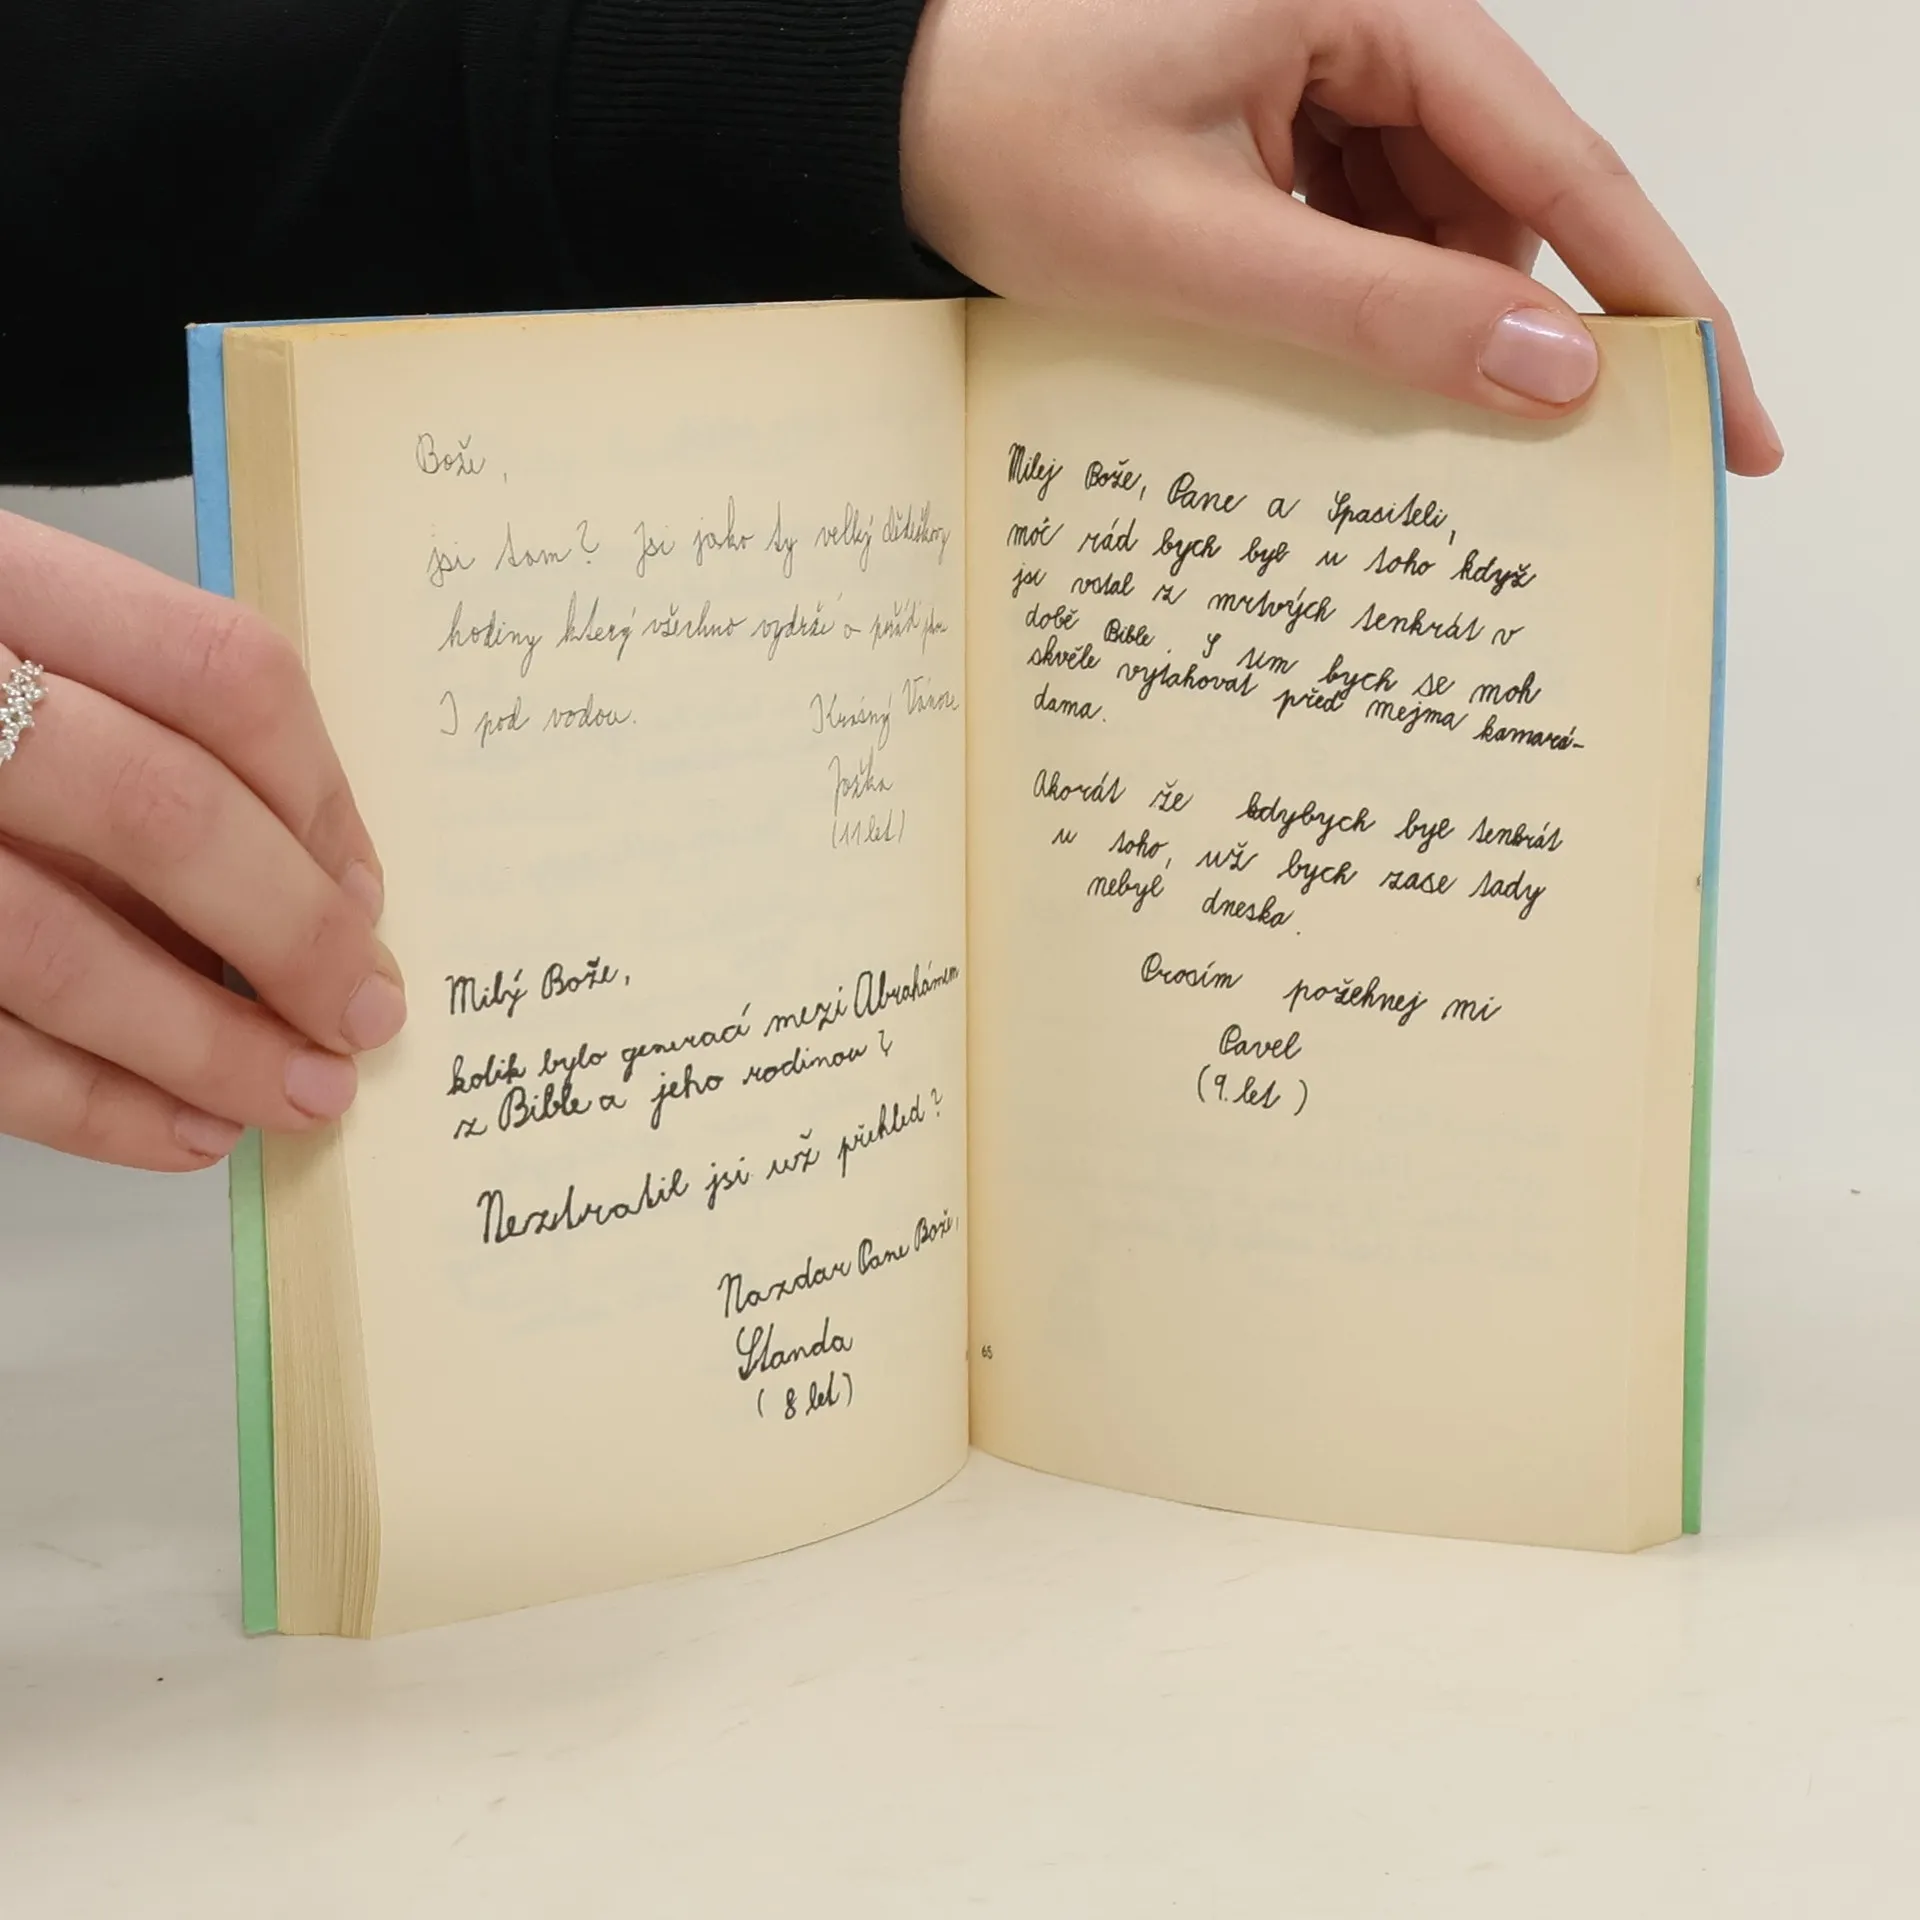 Bože,
jsi tam? Jsi jako ty velký dědečkovy
hodiny který všechno vydrží a pořád jdou
I pod vodou.
Krásný Vánoce
Jožka
(11 let)
Milý Bože,
kolik bylo generací mezi Abrahámem
z Bible a jeho rodinou?
Neztratil jsi už přehled?
Nazdar Pane Bože,
Standa
(8 let)
Milej Bože, Pane a Spasiteli,
moc rád bych byl u toho když
jsi vstal z mrtvých tenkrát v
době Bible. S tim bych se moh
skvěle vytahovat před mejma kamará-
dama.
Akorát že kdybych byl tenkrát
u toho, už bych zase tady
nebyl dneska.
Prosím požehnej mi
Pavel
(9. let)
65